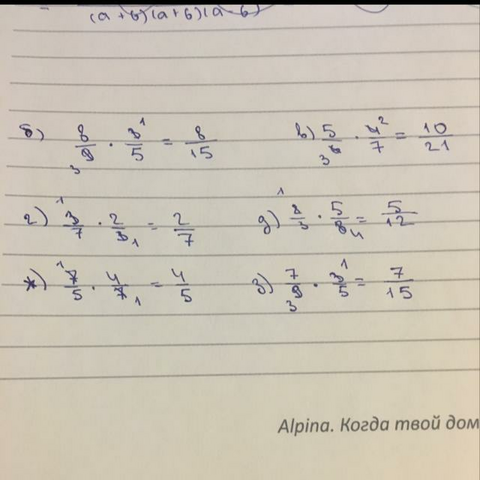 (a+b)(a+b)(a-b)
б) 8/9 3 · 3/5 1 = 8/15 в) 5/6 3 · 4/7 2 = 10/21
г) 3/7 1 · 2/3 1 = 2/7 д) 2/3 1 · 5/8 4 = 5/12
ж) 7/5 1 · 4/7 1 = 4/5 з) 7/9 3 · 3/5 1 = 7/15
Alpina. Когда твой дом